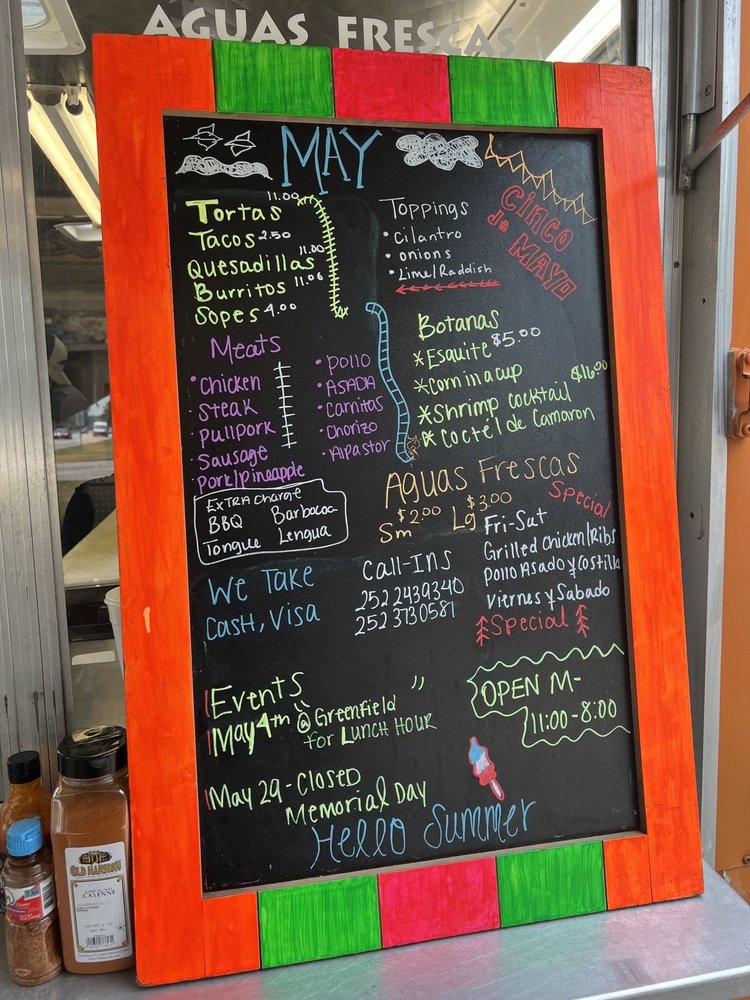 AGUAS FRESCAS
MAY
Tortas 11.00
Tacos 2.50
Quesadillas 11.00
Burritos 11.00
Sopes 4.00
Toppings
• cilantro
• onions
• Lime/Raddish
Cinco
de MAYO
Meats
• Chicken
• Steak
• Pullpork
• Sausage
• Pork/Pineapple
• Pollo
• ASADA
• Carnitas
• Chorizo
• Alpastor
Botanas
*Esquite $5.00
*Corn in a cup
*Shrimp cocktail $16.00
*Coctél de Camaron
Extra Charge
BBQ Barbacoa
Tongue Lengua
Aguas Frescas
Sm $2.00 Lg $3.00
We Take
Cash, Visa
Call-Ins
252 2439340
252 3730581
Special
Fri-Sat
Grilled Chicken/Ribs
Pollo Asado y Costilla
Viernes y Sabado
Special
Events
May 4th @ "Greenfield"
for Lunch Hour
OPEN M-
11:00-8:00
May 29 - Closed
Memorial Day
Hello Summer
OLD MANSION
CAYENNE